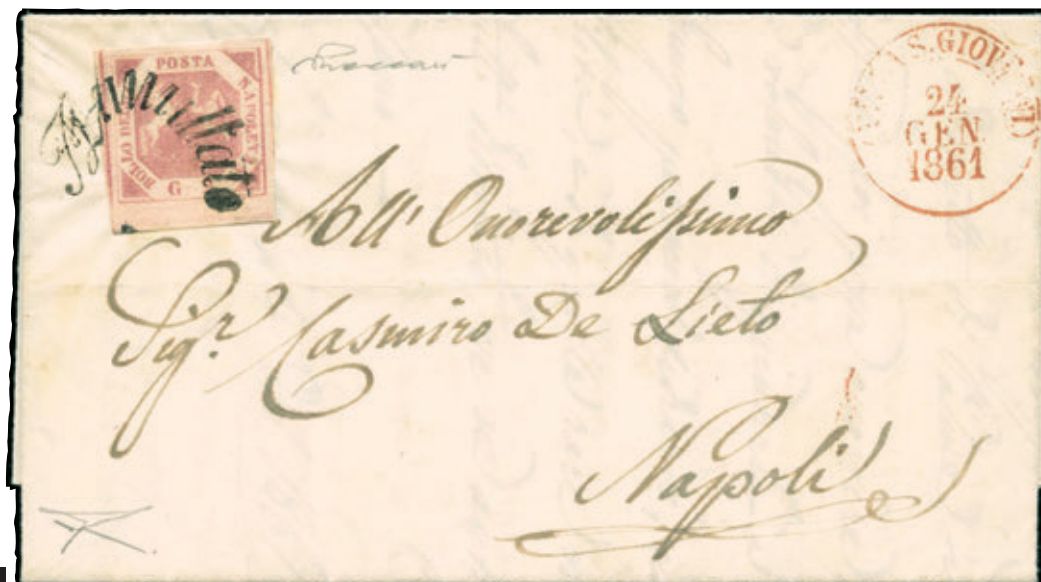 POSTA
NAPOLETANA
BOLLO DELLA
G
Annullato
S. GIOV
24
GEN
1861
All' Onorevolissimo
Sig.r Casimiro De Lieto
Napoli